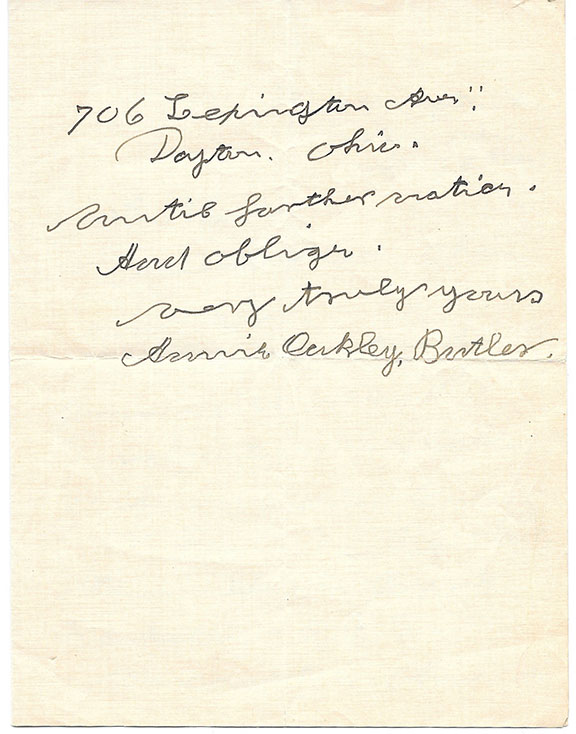 706 Lexington Ave"
Dayton. Ohio.
Until further notice.
And oblige.
very truly yours
Annie Oakley, Butler.